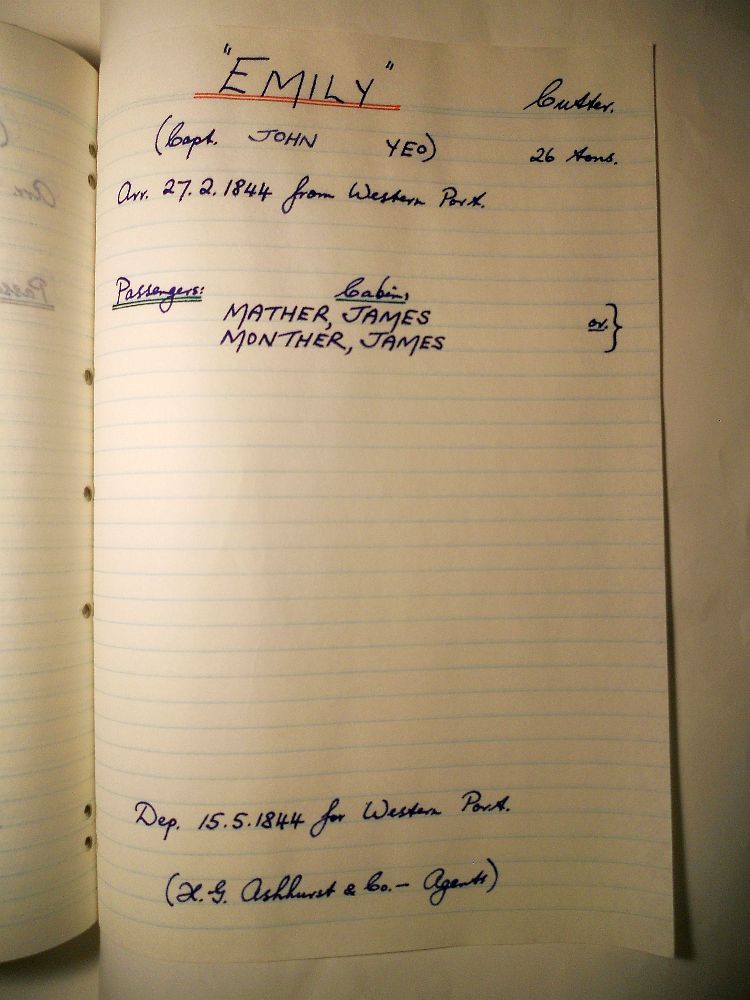 "EMILY" Cutter.
(Capt. JOHN YEO) 26 tons.
Arr. 27.2.1844 from Western Port.
Passengers: Cabin,
MATHER, JAMES
or. }
MONTHER, JAMES
Dep. 15.5.1844 for Western Port.
(H.G. Ashhurst & Co. – Agents)